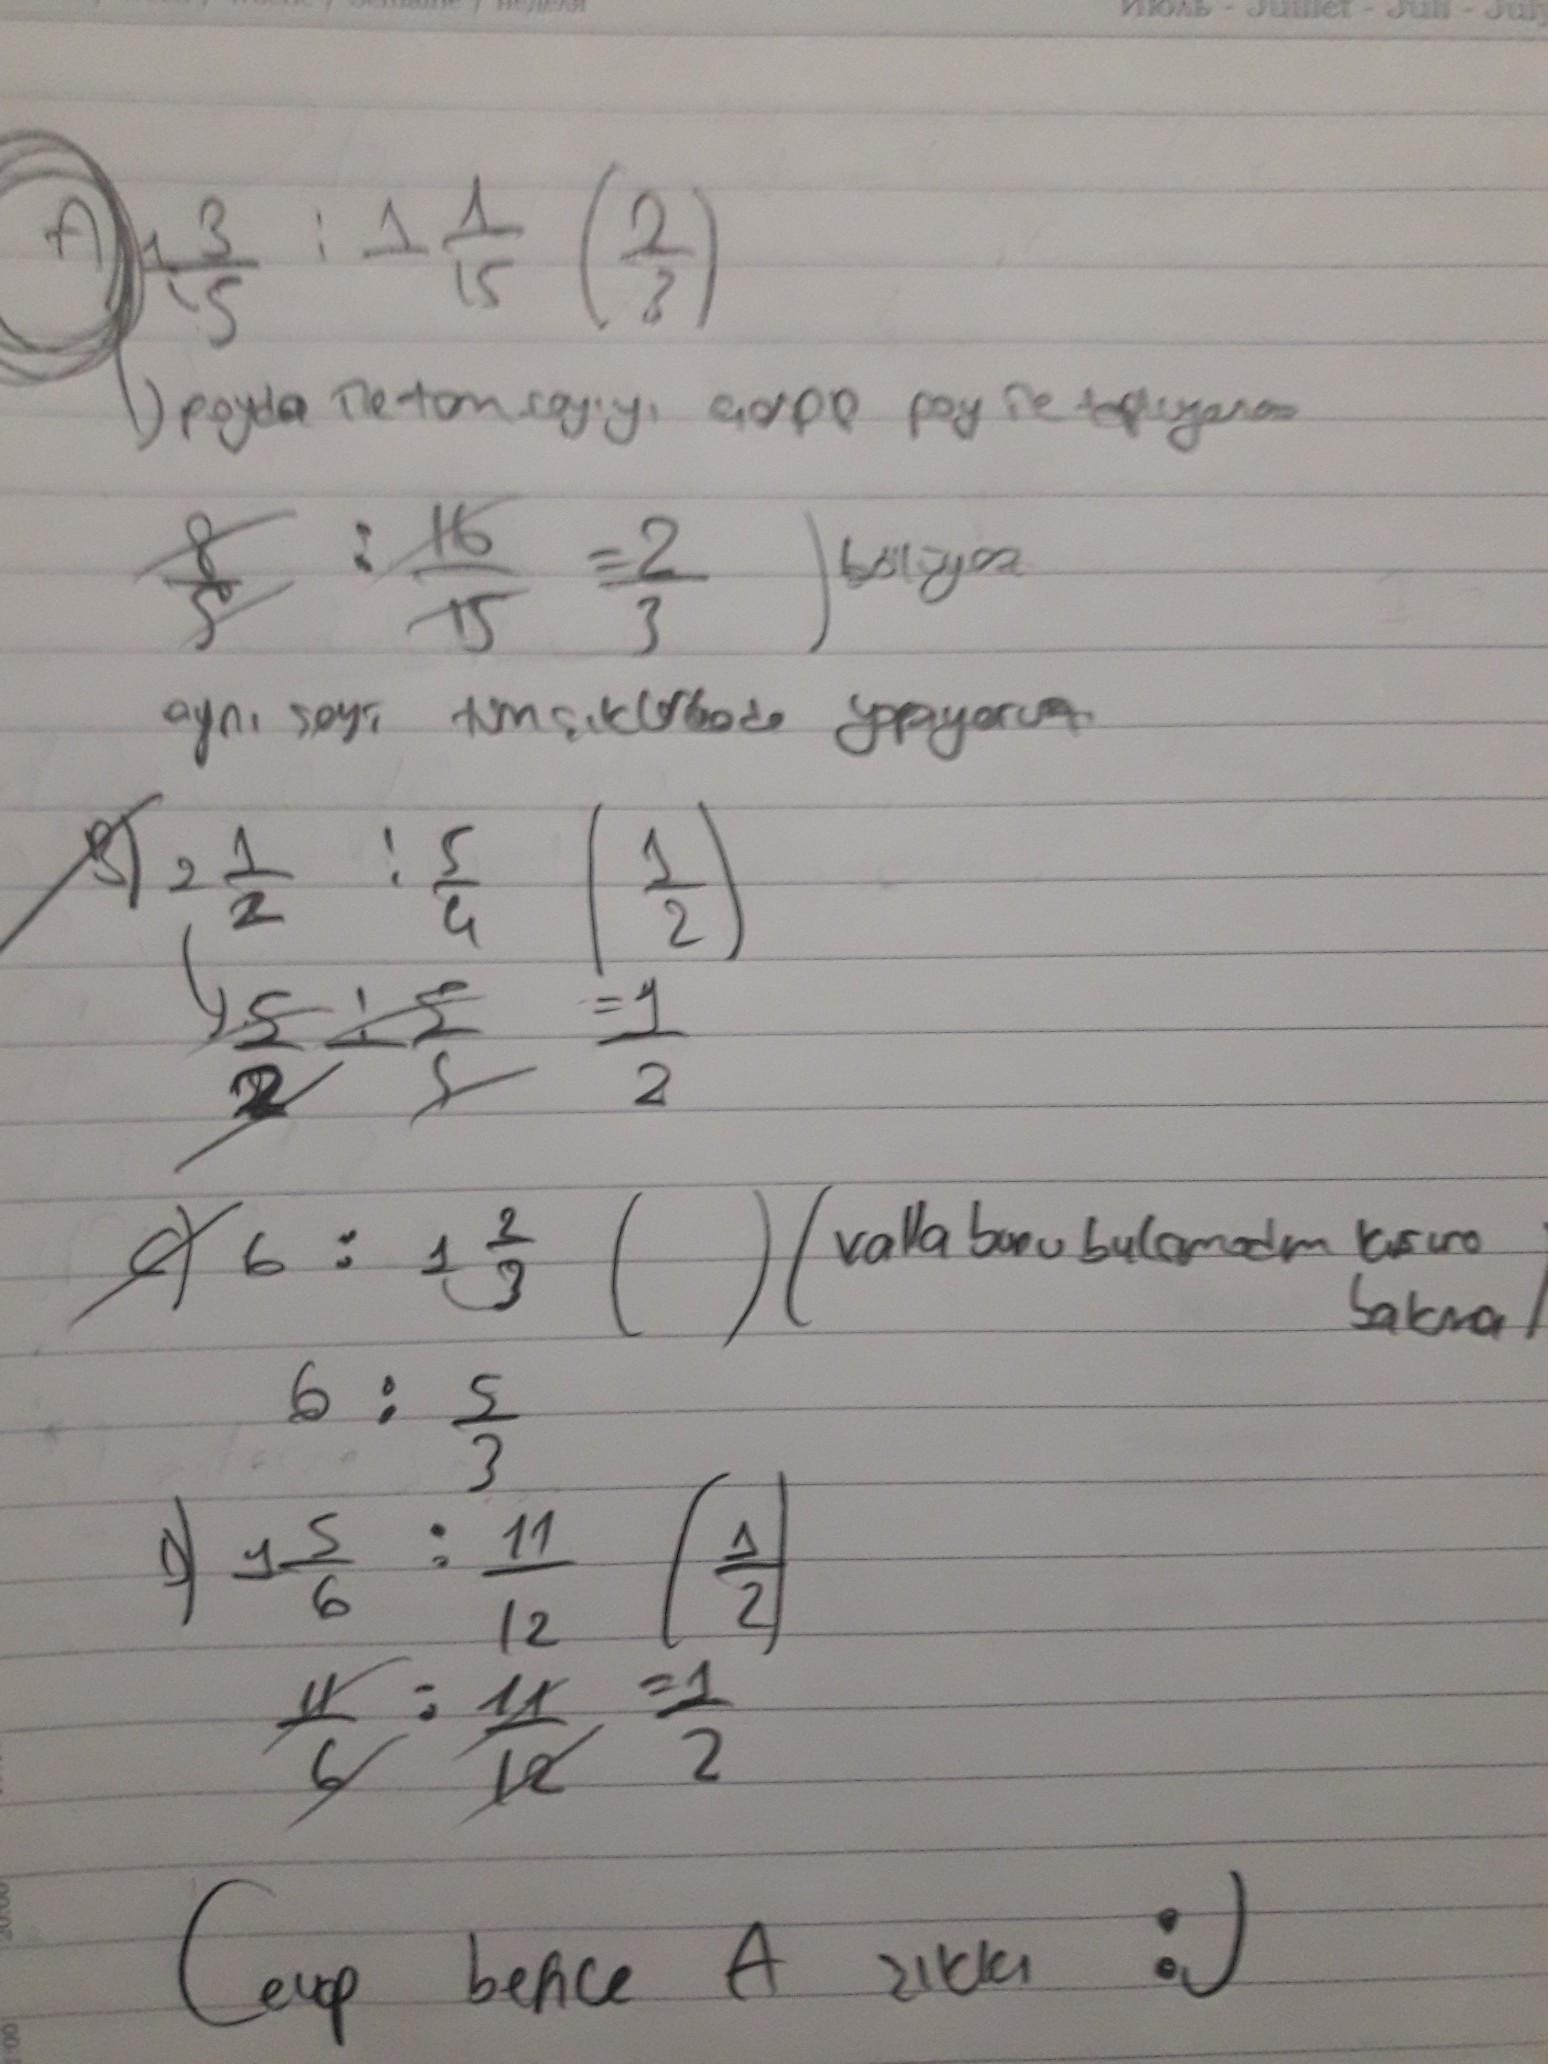 Июль - Juillet - Juli - July
A) 1 3/5 : 1 1/15 (2/3)
payda ile tam sayıyı çarpp pay ile toplıyoruz
8/5 : 16/15 = 2/3 ) bölüyoz
aynı şeyi tüm şıklarda yapıyoruz
B) 2 1/2 : 5/4 (1/2)
5/2 : 5 = 1/2
C) 6 : 1 2/3 ( ) (valla bunu bulamadım kusuro
bakma)
6 : 5/3
D) 1 5/6 : 11/12 (1/2)
11/6 : 11/12 = 1/2
Cevap bence A zıkkı :)